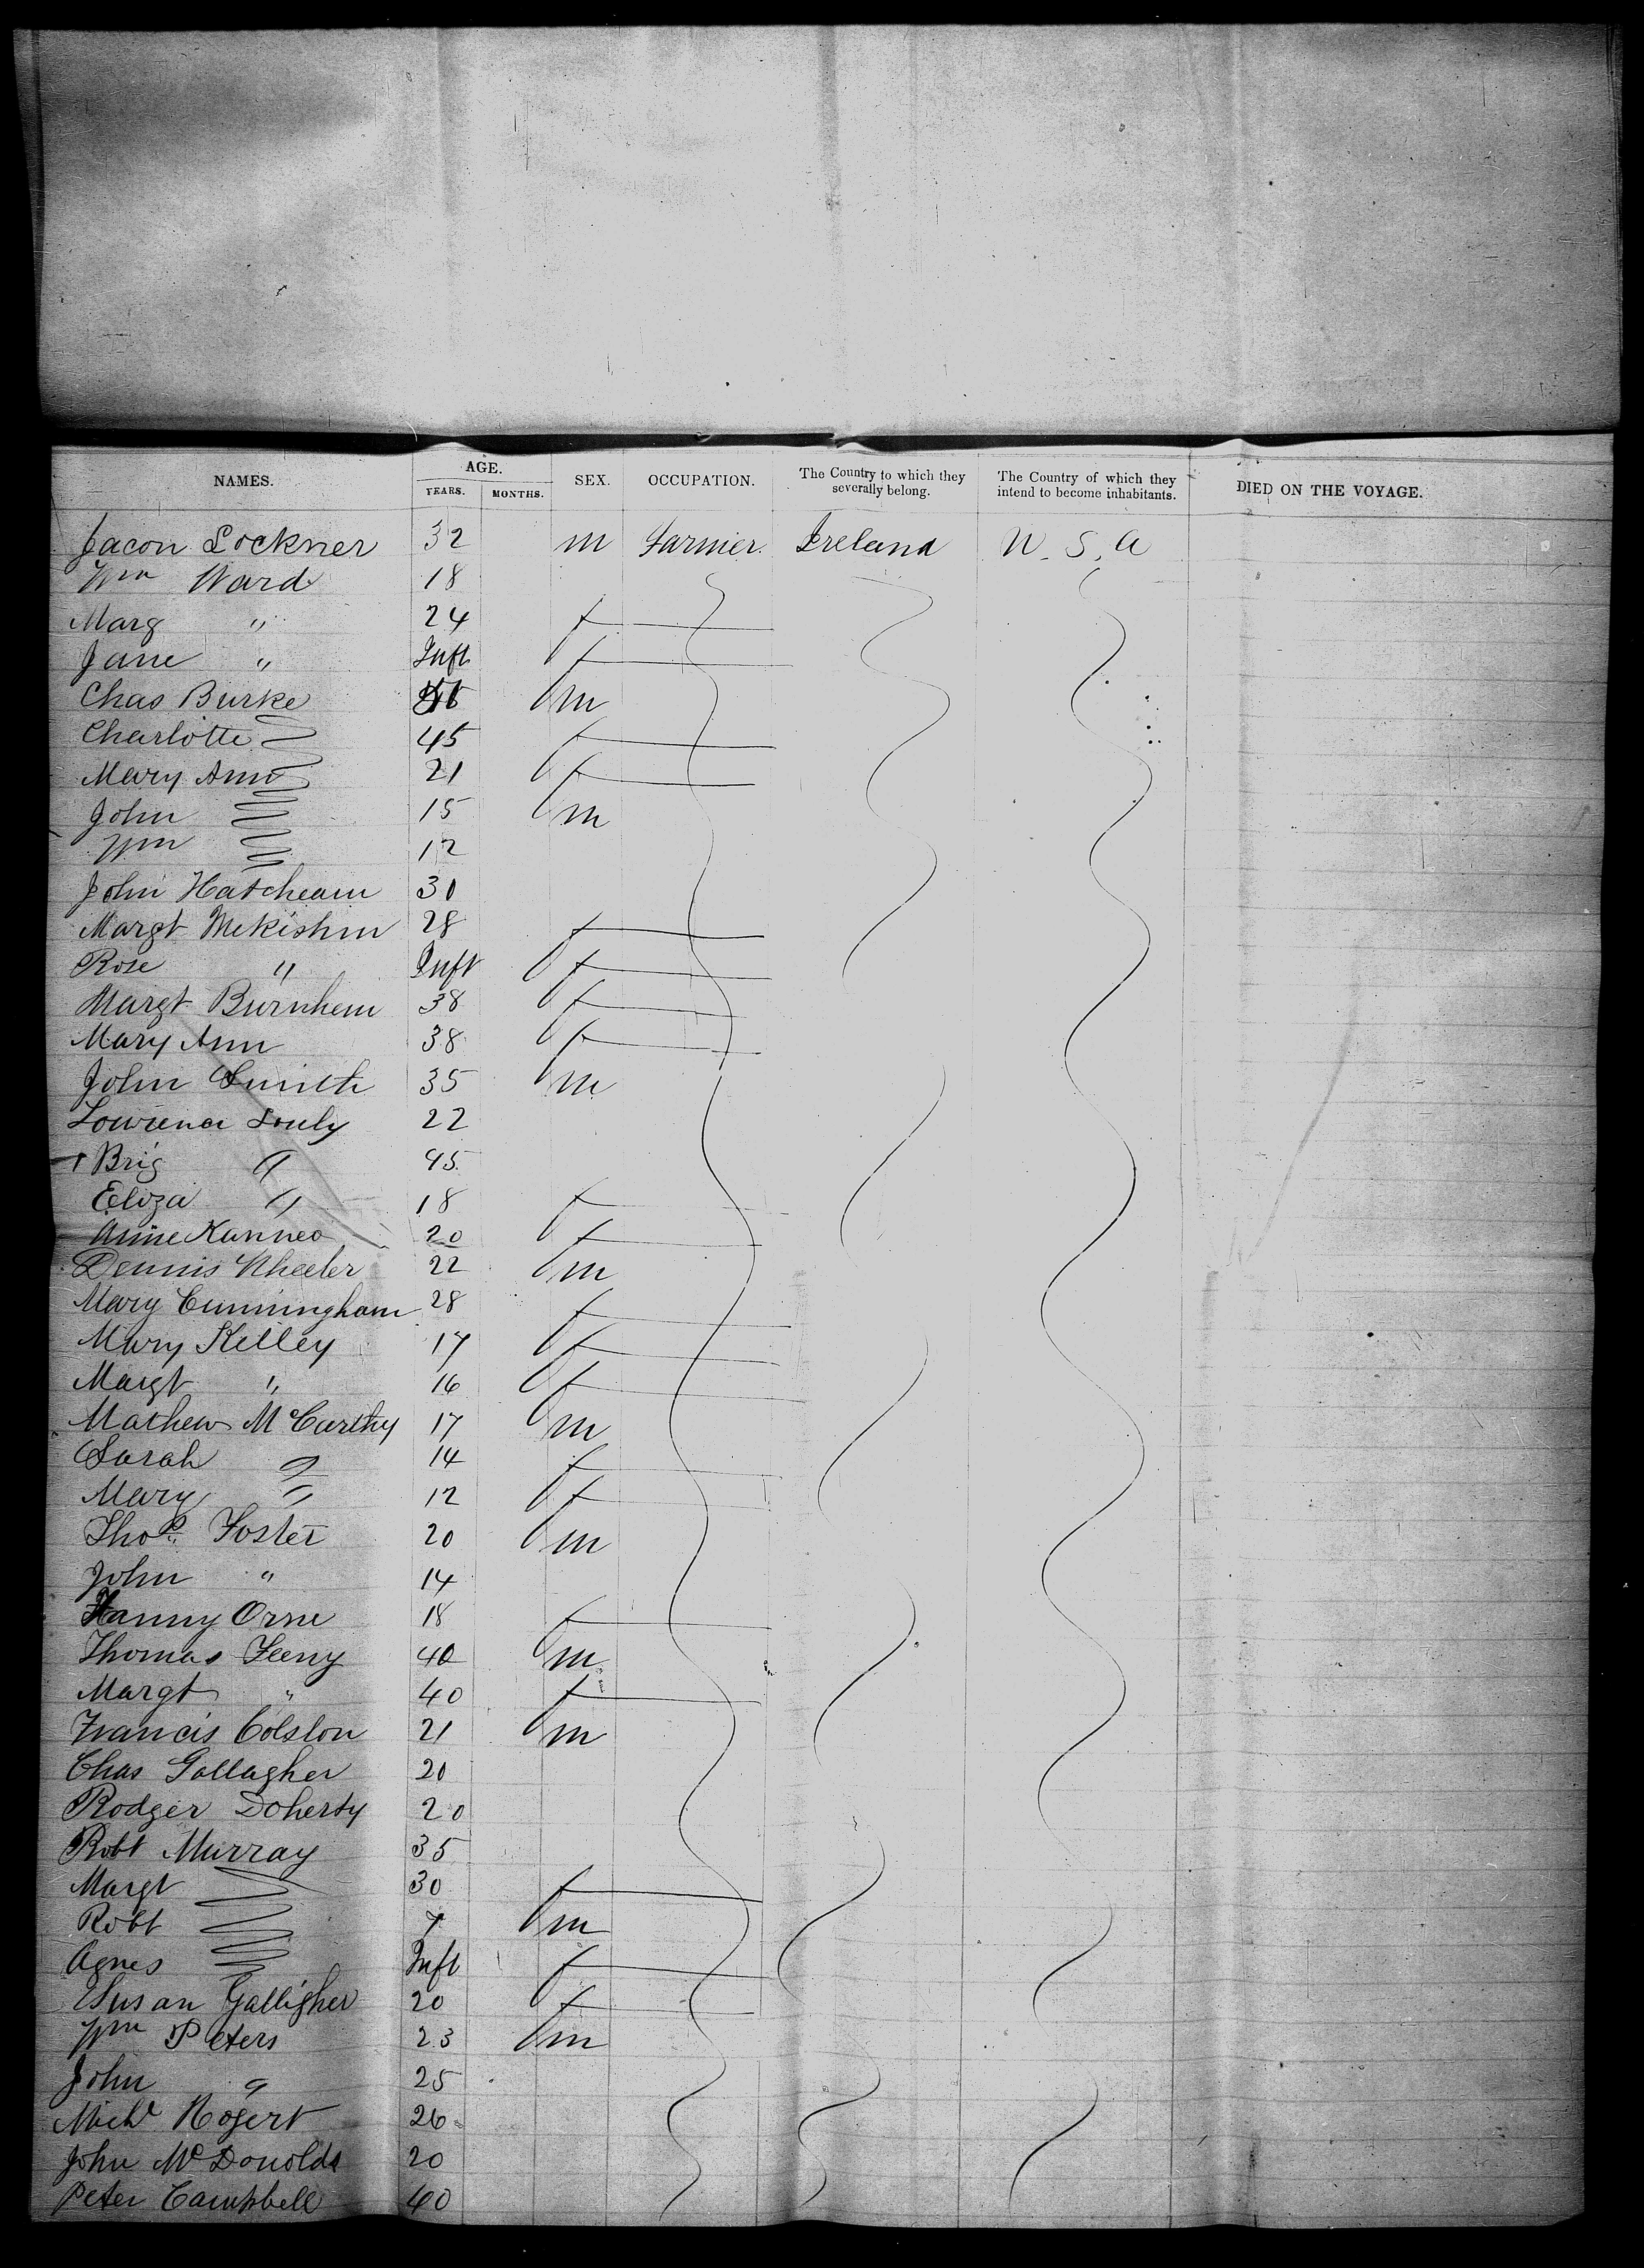 NAMES. AGE. YEARS. MONTHS. SEX. OCCUPATION. The Country to which they severally belong. The Country of which they intend to become inhabitants. DIED ON THE VOYAGE.
Jacon Lockner 32 m Farmer. Ireland U.S.A
Wm Ward 18
Marg " 24 f
Jane " Inft f
Chas Burke m
Charlotte 45 f
Mary Ann 21 f
John 15 m
Wm 12
John Hatcheam 30
Margt McKishin 28 f
Rose " Inft f
Margt Burnhem 38 f
Mary Ann 38 f
John Smith 35 m
Lowrence Souly 22
Brig " 45
Eliza " 18 f
Anne Kanneo 20 f
Dennis Wheeler 22 m
Mary Cunningham 28 f
Mary Kelley 17 f
Margt " 16 f
Mathew McCarthy 17 m
Sarah " 14 f
Mary " 12 f
Thos Foster 20 m
John " 14
Fanny Orne 18 f
Thomas Feeny 40 m
Margt " 40 f
Francis Colston 21 m
Chas Gallagher 20
Rodger Doherty 20
Robt Murray 35
Margt 30 f
Robt 7 m
Agnes Inft f
Susan Galligher 20 f
Wm Peters 23 m
John " 25
Michl Rogert 26
John McDonolds 20
Peter Campbell 40